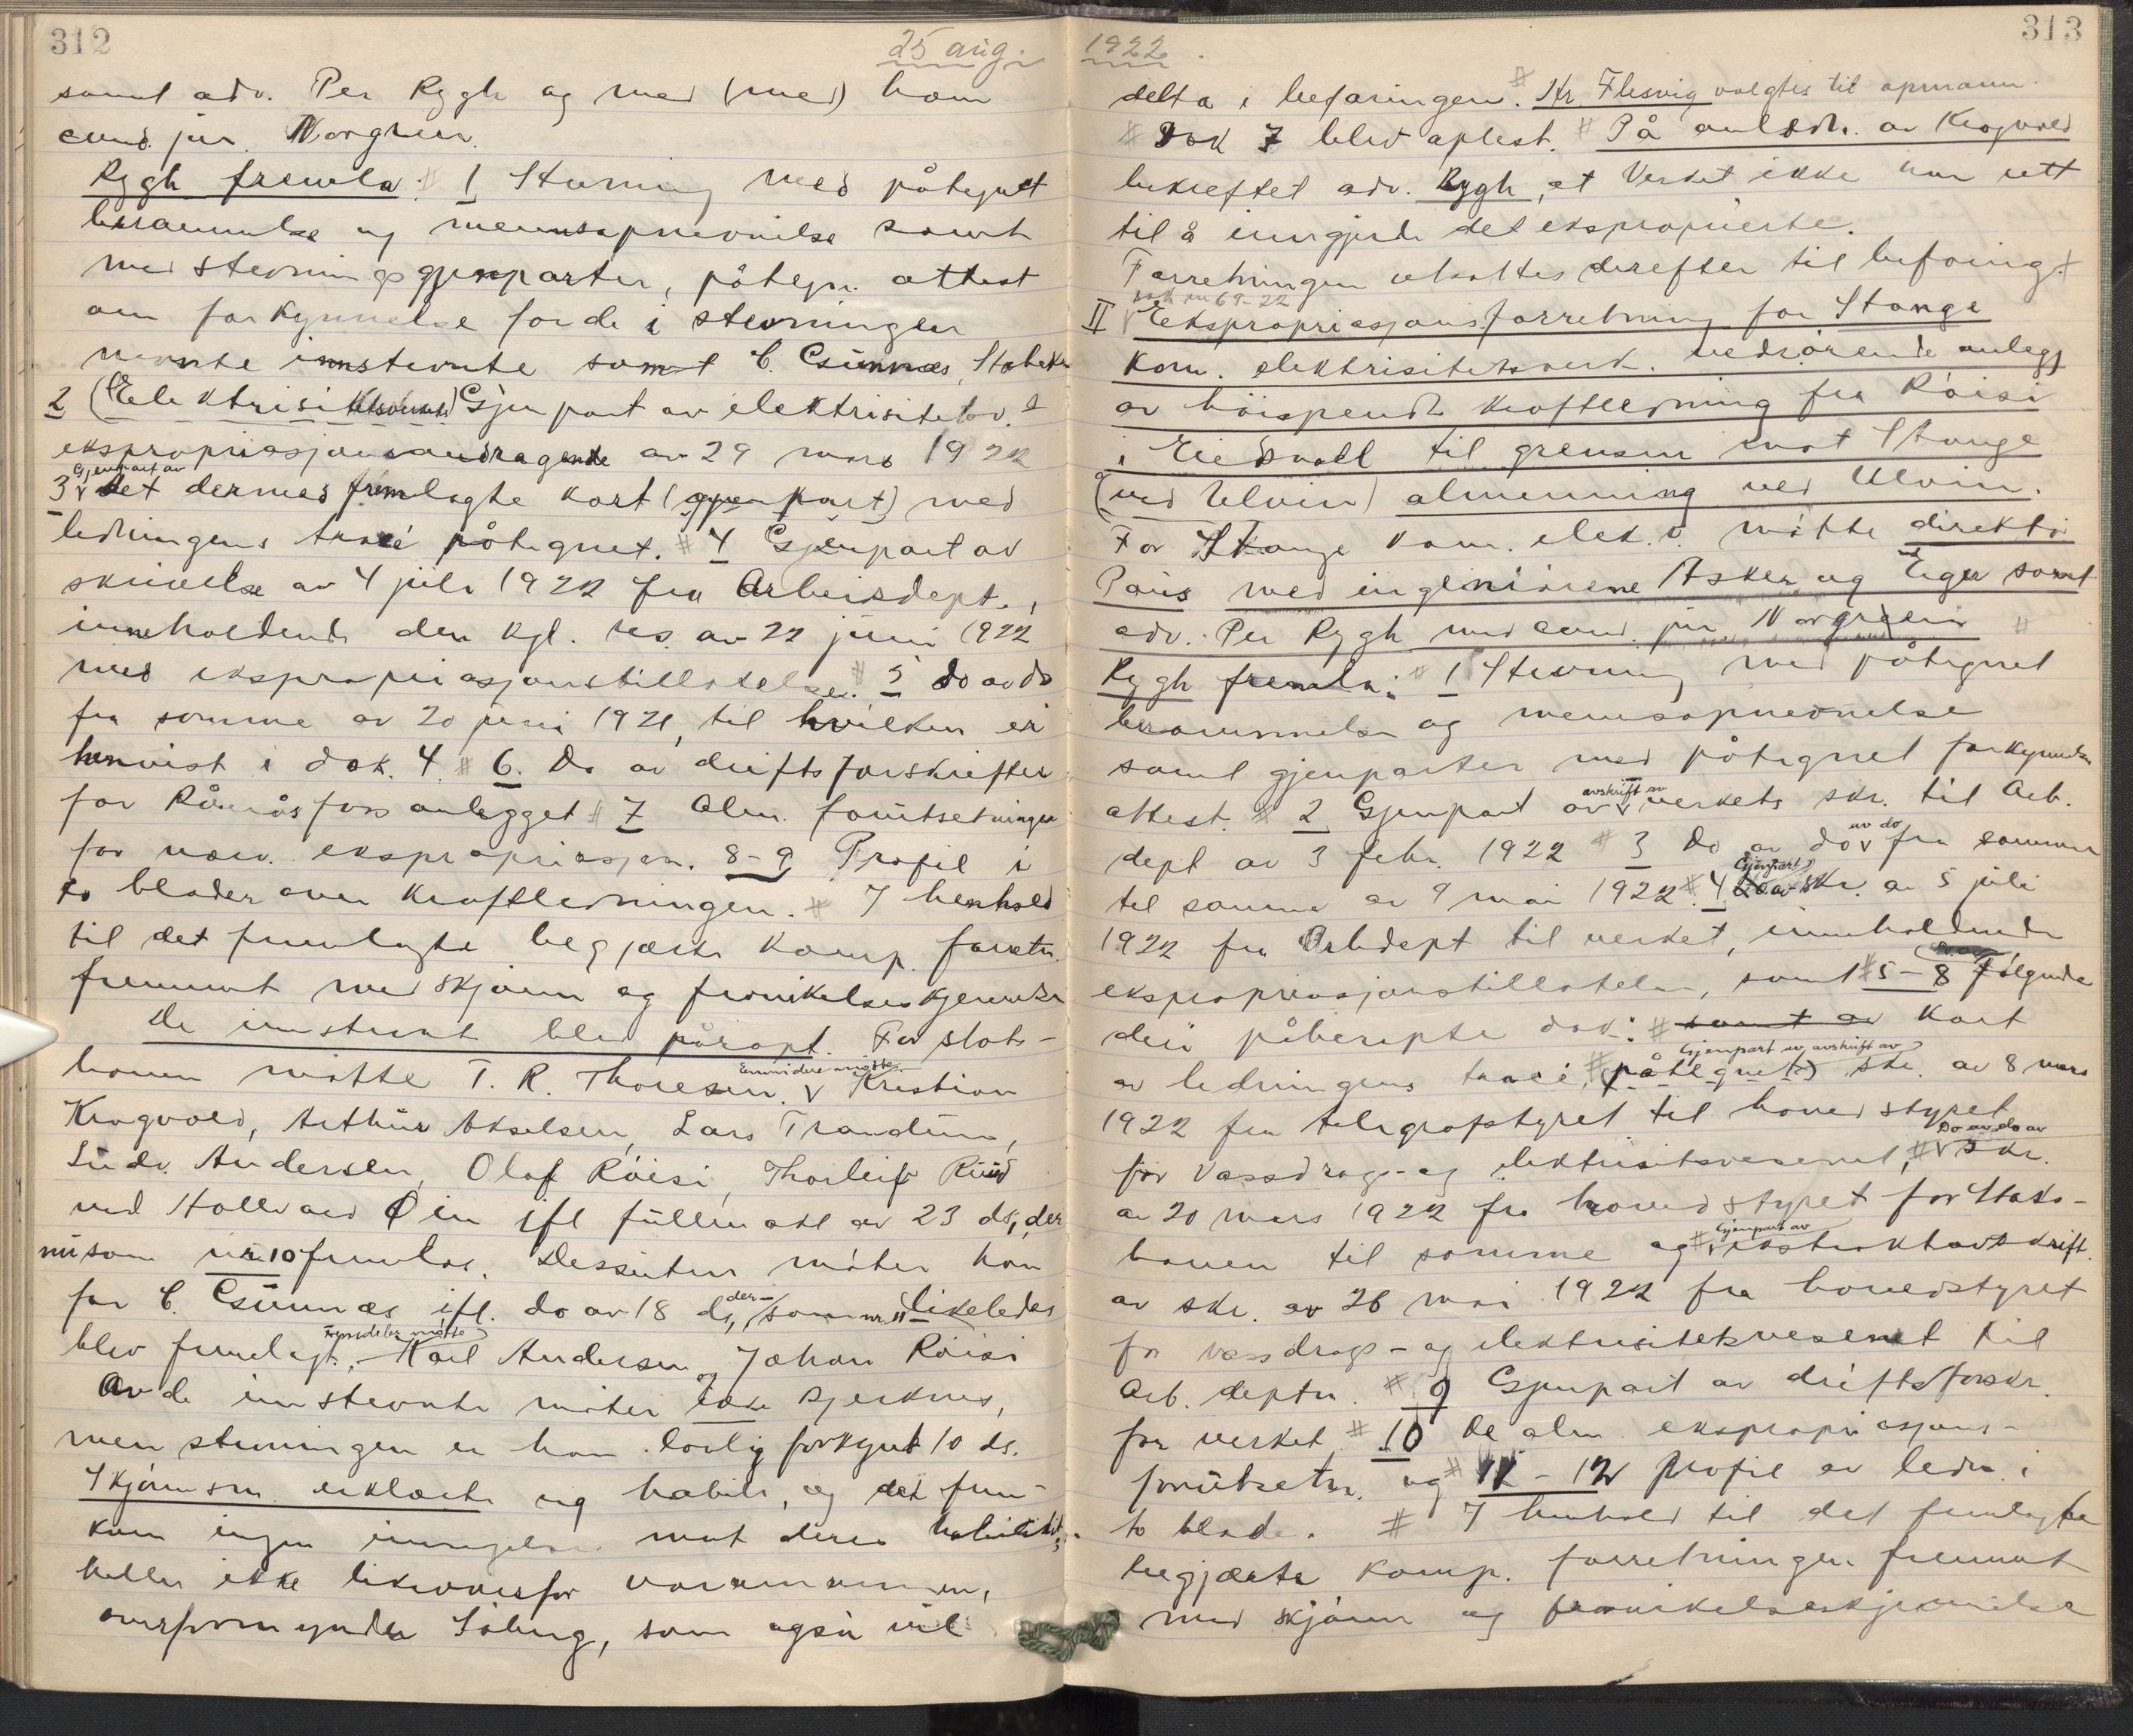 312
25 aug.
samt adv. Per Rygh og med (med) ham
cand. jur. Norgreen.
Rygh fremla: # 1 Stevning med påtegnet
berammelse og mennsopnevnelse samt
med stevningsgjenparter, påtegn. attest
om forkynnelse for de i stevningen
nevnte innstevnte samt C. Gsünnæs, Stabekk
2 (Elektrisitetsverkets) Gjenpart av elektrisitetsv.s
ekspropriasjonsandragende av 29 mars 1922
Gjenpart av
3 v det dermed fremlagte kart (gjenpart) med
ledningens tracé påtegnet. # 4 Gjenpart av
skrivelse av 4 juli 1922 fra Arbeidsdept.,
inneholdende den kgl. res. av 22 juni 1922
med ekspropriasjonstillatelse. # 5 do av do
fra samme av 20 juni 1921, til hvilken er
henvist i dok. 4. # 6. Do av driftsforskrifter
for Rånåsfossanlegget # 7 Alm. forutsetninger
for nærv. ekspropriasjon. 8-9 Profil i
to blader over kraftledningen. # I henhold
til det fremlagte begjærte komp. forretn.
fremmet med skjønn og fravikelseskjennelse
De innstevnte blev påropt. For stat-
Ennvidere møtte
hanen møtte T. R. Thoresen. v Kristian
Krogvold, Arthur Akselsen, Lars Trandum,
Ludv. Andersen, Olaf Röisi, Thorleif Ruud
ved Hallvard Öien ifl fullmakt av 23 ds, der
nu som nr 10 fremlas. Dessuten møter han
for C. Gsünnæs ifl. do av 18 ds, der- som nr. 11 likeledes
Fremdeles møtte
blev fremlagt. Karl Andersen og Johan Röisi
Av de innstevnte møter ikke Bjerknes,
men stevningen er ham lovlig forkynt 10 ds.
Skjønnsm. erklærte sig habile, og det frem-
kom ingen innsigelse mot deres habilitet,
heller ikke likeoverfor varamannen,
overformynder Söberg, som også vil
313
1922
delta i befaringen. # Kr. Flesvig valgtes til opmann
# Dok 7 blev oplest. # På anledn. av Krogvold
bekreftet adv. Rygh, at Verket ikke har rett
til å inngjerde det eksproprierte.
Forretningen utsattes derefter til befaring. #
sak nr 69-22
II v Ekspropriasjonsforretning for Stange
kom. elektrisitetsverk. vedrörende anlegg
av höispendt kraftledning fra Röisi
i Eidsvoll til grensen mot Stange
(ved Ulvin) almenning ved Ulvin.
For Stange kom. elek.v. møtte direktör
Paus med ingeniörene Asker og Eger samt
adv. Per Rygh med cand. jur. Norgreen #
Rygh fremla: # 1 Stevning med påtegnet
berammelse og mennsopnevnelse
samt gjenparter med påtegnet forkynnelses
attest. # 2 Gjenpart av v avskrift av verkets skr. til Arb.
dept av 3 febr. 1922 # 3 Do av do v av do fra samme
til samme av 9 mai 1922. # 4 Gjenpart skr. av 5 juli
1922 fra Arbdept til verket, inneholdende
ekspropriasjonstillatelse, samt # 5-8 følgende
deri påberopte dok: # samt av Kart
Gjenpart av avskrift av
av ledningens tracé, # (påtegnet) skr. av 8 mars
1922 fra telegrafstyret til hovedstyret
Do av do av
for Vassdrags- og elektrisitetsvesenet, # v skr.
av 20 mars 1922 fra hovedstyret for Stats-
Gjenpart av
banen til samme og # v ekstraktavskrift
av skr. av 26 mai 1922 fra hovedstyret
for vassdrags- og elektrisitetsvesenet til
Arb. deptn. # 9 Gjenpart av driftsforskr.
for verket # 10 De alm. ekspropriasjons-
forutsetn. og # 11-12 profil av ledn. i
to blade. # I henhold til det fremlagte
begjærte komp. forretningen fremmet
med skjönn og fravikelseskjennelse